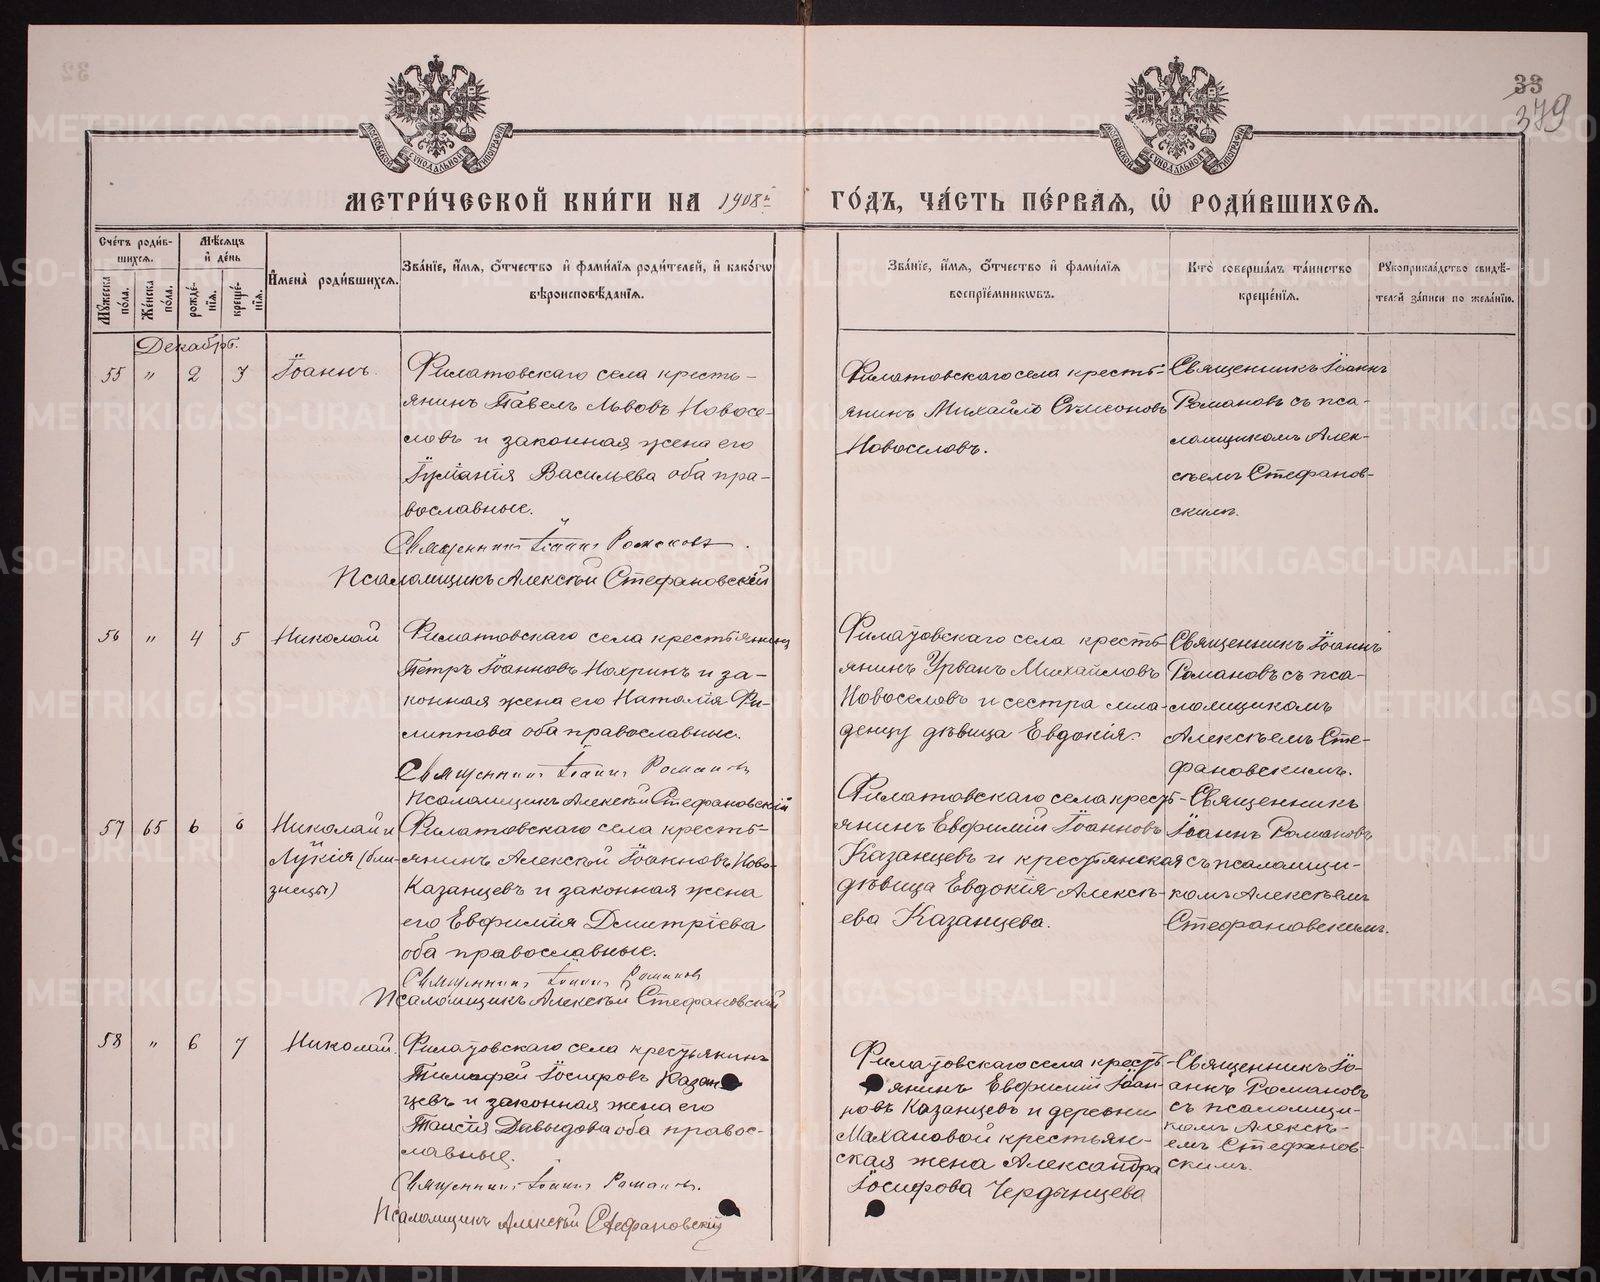 33
379
МОСКОВСКОЙ СѴНОДАЛЬНОЙ ТИПОГРАФІИ
МОСКОВСКОЙ СѴНОДАЛЬНОЙ ТИПОГРАФІИ
МЕТРИ́ЧЕСКОЙ КНИ́ГИ НА 1908й ГО́ДЪ, ЧА́СТЬ ПЕ́РВАЯ, Ѡ҆ РОДИ́ВШИХСЯ.
Сче́тъ роди́в-
шихся.
Мѣ́сяцъ
и҆ де́нь
Мꙋ́жеска
по́ла.
Же́нска
по́ла.
рожде́-
нїя.
креще́-
нїя.
И҆мена̀ роди́вшихся.
Зва́нїе, и҆́мя, ѻ҆́тчество и҆ фами́лїя роди́телей, и҆ како́гѡ
вѣроисповѣ́данїя.
Зва́нїе, и҆́мя, ѻ҆́тчество и҆ фами́лїя
воспрїе́мникѡвъ.
Кто̀ соверша́лъ та́инство
креще́нїя.
Рꙋкоприкла́дство свидѣ́-
телей за́писи по жела́нїю.
Декабрь.
55 " 2 3 Іоаннъ.
Филатовскаго села кресть-
янинъ Павелъ Львовъ Новосе-
ловъ и законная жена его
Іуліанія Васильева оба пра-
вославные.
Священникъ Іоаннъ Романовъ.
Псаломщикъ Алексѣй Стефановскій
Филатовскаго села кресть-
янинъ Михайло Новоселовъ.
Священникъ Іоаннъ
Романовъ съ пса-
ломщикомъ Алек-
сѣемъ Стефанов-
скимъ.
56 " 4 5 Николай
Филатовскаго села крестьянинъ
Петръ Іоанновъ Нохринъ и за-
конная жена его Наталія Фи-
липпова оба православные.
Священникъ Іоаннъ Романовъ
Псаломщикъ Алексѣй Стефановскій
Филатовскаго села кресть-
янинъ Урванъ Михайловъ
Новоселовъ и сестра мла-
денцу дѣвица Евдокія.
Священникъ Іоаннъ
Романовъ съ пса-
ломщикомъ
Алексѣемъ Сте-
фановскимъ.
57 65 6 6 Николай и
Лукія (бли-
знецы)
Филатовскаго села кресть-
янинъ Алексѣй Іоанновъ Ново-
Казанцевъ и законная жена
его Евфимія Дмитріева
оба православные.
Священникъ Іоаннъ Романовъ
Псаломщикъ Алексѣй Стефановскій
Филатовскаго села кресть-
янинъ Евфимій Іоанновъ
Казанцевъ и крестьянская
дѣвица Евдокія Алексѣ-
ева Казанцева.
Священникъ
Іоаннъ Романовъ
съ псаломщи-
комъ Алексѣемъ
Стефановскимъ.
58 " 6 7 Николай.
Филатовскаго села крестьянинъ
Тимофей Іосифовъ Казан-
цевъ и законная жена его
Таисія Давыдова оба правос-
лавные.
Священникъ Іоаннъ Романовъ.
Псаломщикъ Алексѣй Стефановскій
Филатовскаго села кресть-
янинъ Евфимій Іоан-
новъ Казанцевъ и деревни
Махановой крестьян-
ская жена Александра
Іосифова Чердынцева
Священникъ Іо-
аннъ Романовъ
съ псаломщи-
комъ Алексѣ-
емъ Стефанов-
скимъ.
METRIKI.GASO-URAL.RU